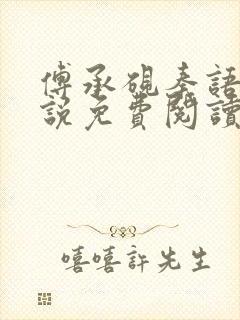 傅承硯秦語
說免費閱讀
嘻嘻許先生